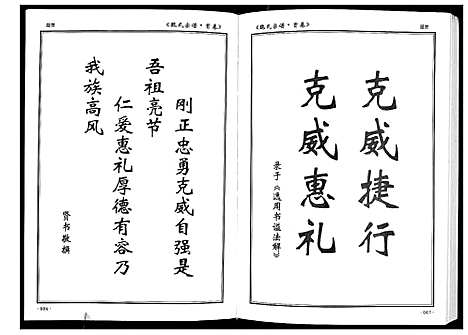 《魏氏宗谱·首卷》
刚正忠勇克威自强是
吾祖亮节
仁爱惠礼厚德有容乃
我族高风
贤书敬撰
·006·
《魏氏宗谱·首卷》
克威捷行
克威惠礼
录于《逸周书谥法解》
·007·